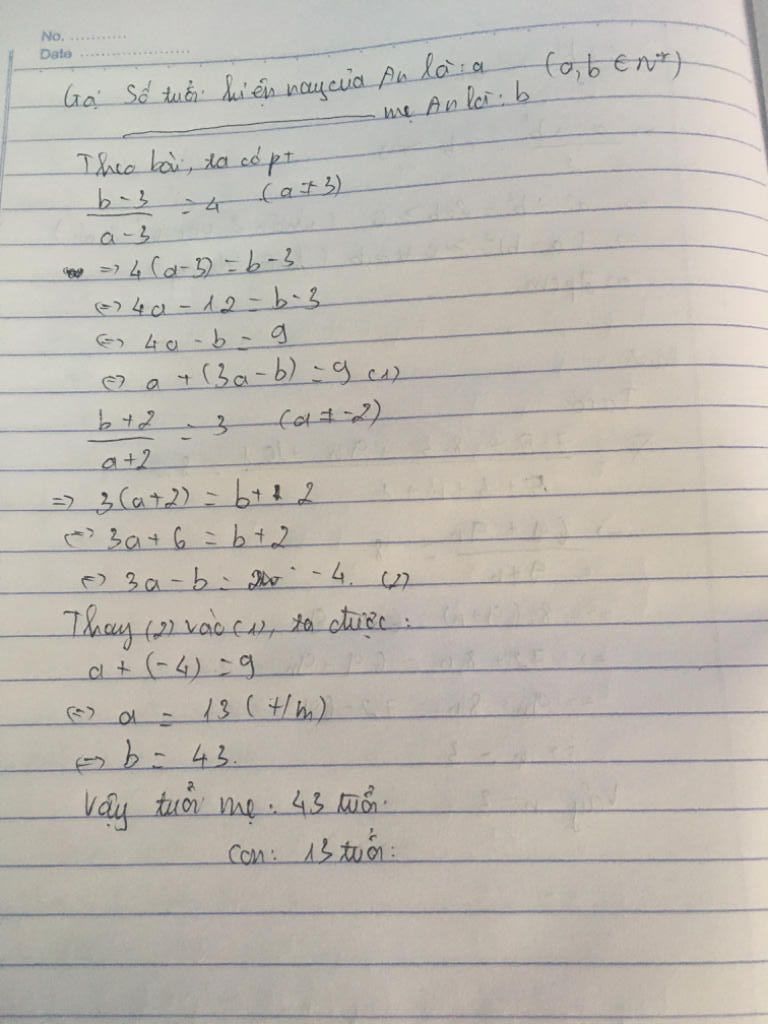 No. ............
Date ........................
Gọi Số tuổi hiện nay của An là: a (a, b ∈ N*)
mẹ An là: b
Theo bài, ta có pt
b - 3 / a - 3 = 4 (a ≠ 3)
=> 4(a-3) = b-3
<=> 4a - 12 = b-3
<=> 4a - b = 9
<=> a + (3a-b) = 9 (1)
b + 2 / a + 2 = 3 (a ≠ -2)
=> 3(a+2) = b + 2
<=> 3a + 6 = b + 2
<=> 3a - b = -4. (2)
Thay (2) vào (1), ta được:
a + (-4) = 9
<=> a = 13 (t/m)
<=> b = 43.
Vậy tuổi mẹ: 43 tuổi.
con: 13 tuổi: